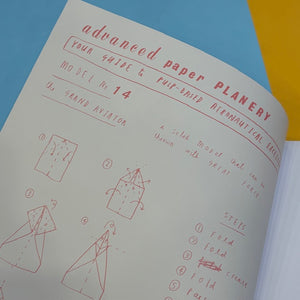 advanced paper PLANERY
YOUR GUIDE to PULP-BASED AERONAUTICAL
MODEL No. 14
The GRAND AVIATOR
a sleek model that can be
thrown with GREAT FORCE
STEPS
① FOLD
② FOLD
③ CREASE
④ FOLD
⑤
①
②
③
④